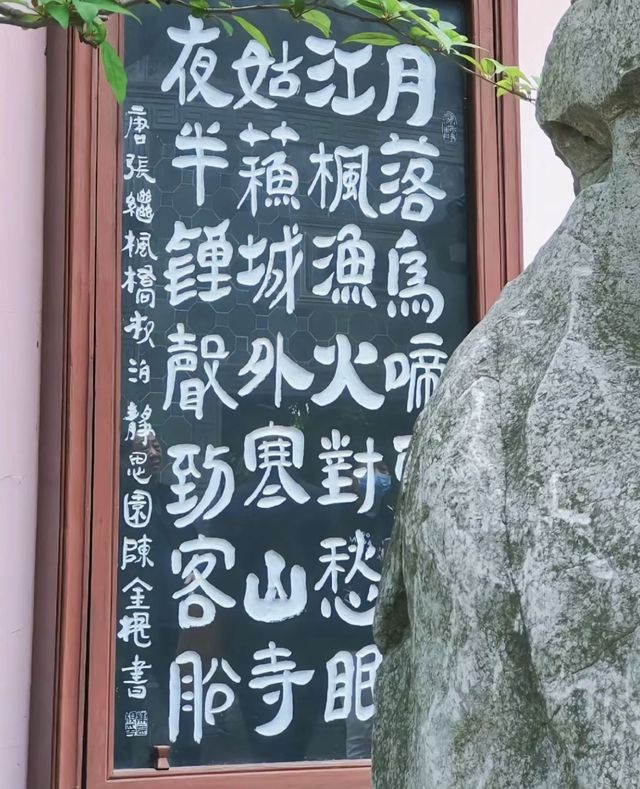 月落烏啼
江楓漁火對愁眠
姑蘓城外寒山寺
夜半鍾聲到客船
唐張繼楓橋夜泊 靜思園陳金根書